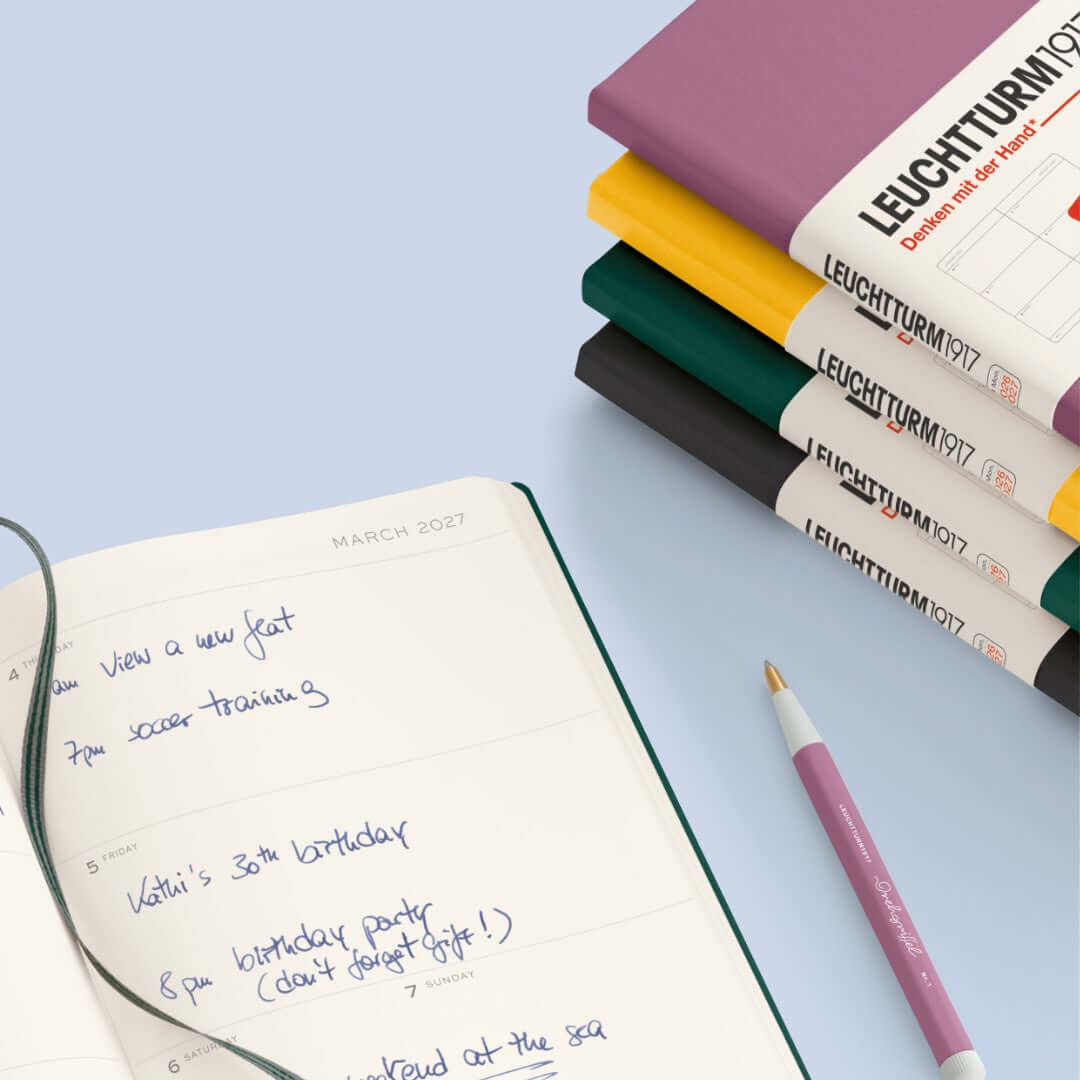 LEUCHTTURM1917
Denken mit der Hand*
LEUCHTTURM1917
LEUCHTTURM1917
LEUCHTTURM1917
LEUCHTTURM1917
MARCH 2027
4
am view a new flat
7pm soccer training
5 FRIDAY
Kathi's 30th birthday
8pm birthday party
(don't forget gift!)
7 SUNDAY
6 SATURDAY
at the sea
LEUCHTTURM1917
Drehgriffel
Nr. 1